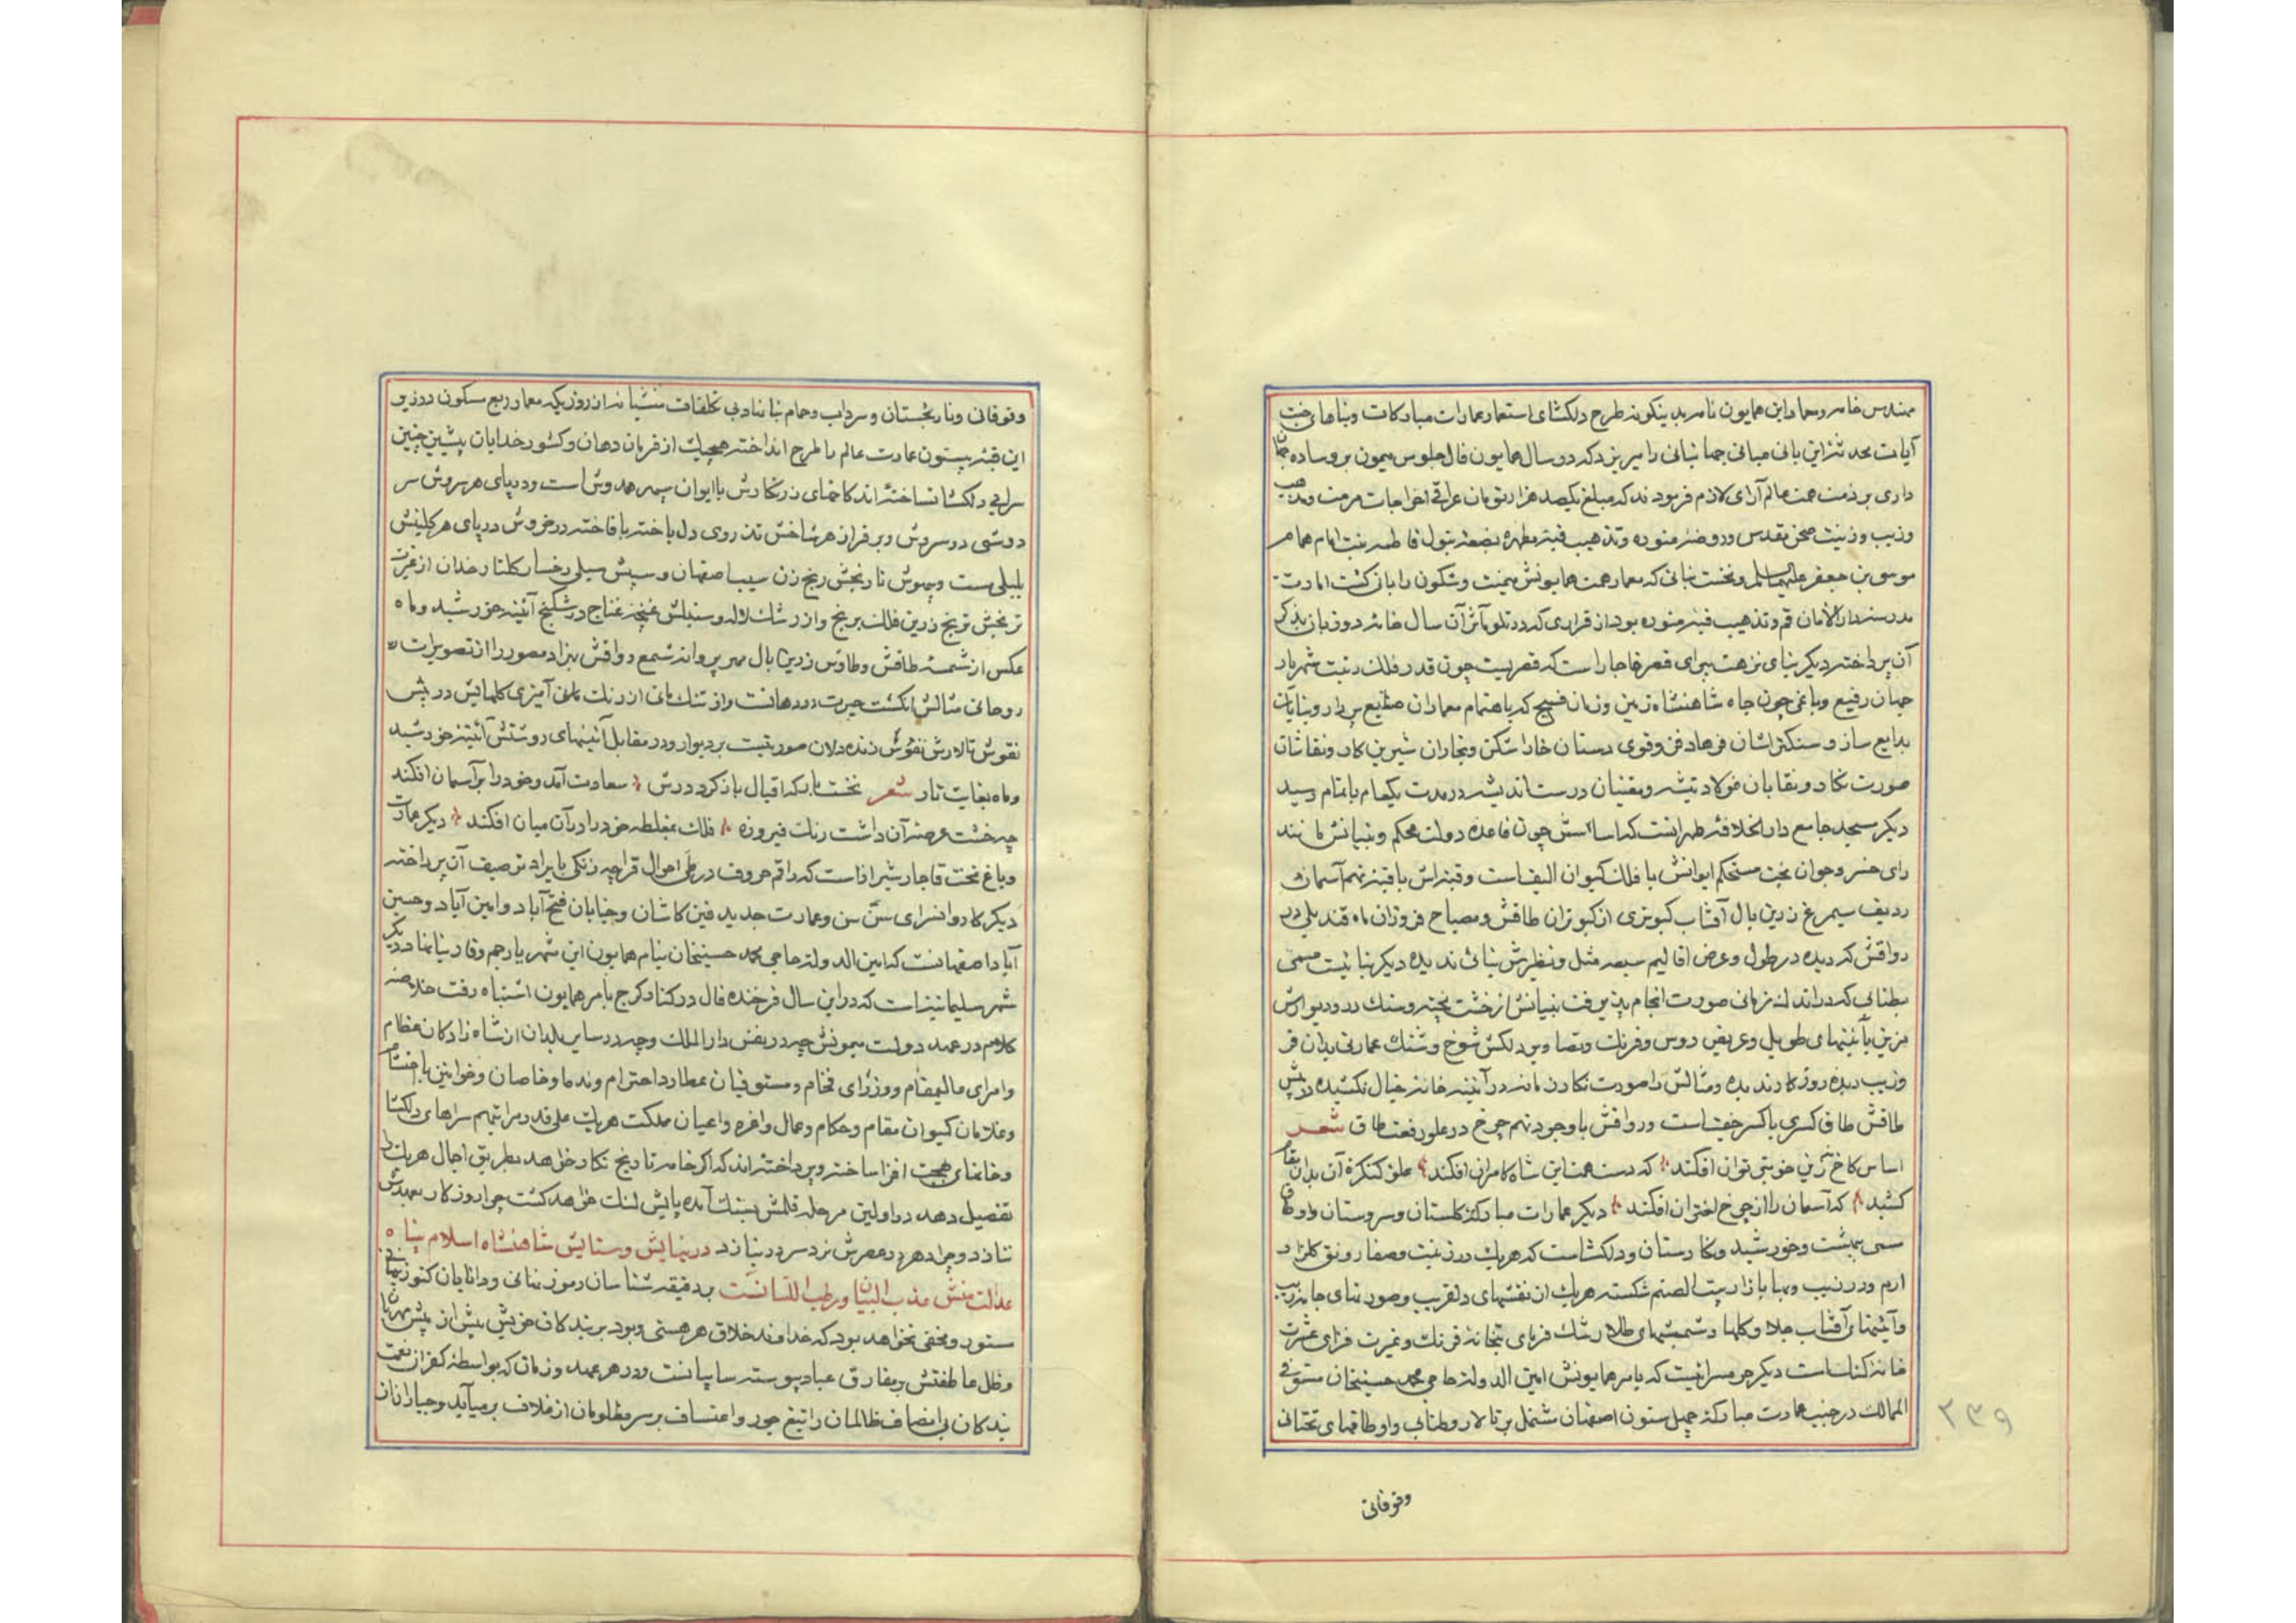 مهندس خامه و معمار این همایون نامه بدینگونه طرح دلکشای استعمار عمارات مبارکات و بناهای جنت
آیات محدثه این بانی مبانی جهانبانی را میریزد که در سال همایون فال جلوس میمون بر وساده جهان
داری بر ذمت همت عالم آرای لازم فرمودند که مبلغ یکصد هزار تومان عراقی اخراجات مرمت و تذهیب
و زیب و زینت صحن مقدس و روضه منوره و تذهیب قبه مطهره بضعه بتول فاطمه بنت امام همام
موسی بن جعفر علیهماالسلم و نخست بنائی که معمار همت همایونش بمیمنت و شکون را بانی گشت امارت
مدرسه دار الامان قم و تذهیب قبه منوره بود از قراری که در تلو مآثر آن سال خامه دو زبان بذکر
آن پرداخته دیگر بنای نزهت پیرای قصر قاجار است که قصریست چون قدر فلک رتبت شهریار
جهان رفیع و باغی چون جاه شاهنشاه زمین و زمان فسیح که باهتمام معماران صنایع پرداز و بنایان
بدایع ساز و سنکتراشان فرهاد فن و قوی دستان خارا شکن و نجاران شیرین کار و نقاشان
صورت نکار و نقابان فولاد تیشه و مقنیان درست اندیشه در مدت یکعام باتمام رسید
دیگر مسجد جامع دار الخلافه طهرانست که اساسش چون قاعده دولت محکم و بنیانش مانند
رای خسرو جوان بخت مستحکم ایوانش با فلک کیوان الیف است و قبه اش با قبه نهم آسمان
ردیف سیمرغ زرین بال آفتاب کبوتری از کبوتران طاقش و مصباح فروزان ماه قندیلی در
رواقش که دیده در طول و عرض اقالیم سبعه مثل و نظیرش بنائی ندیده دیگر بنائیست مسمی
بطنابی که در اندک زمانی صورت انجام پذیرفت بنیانش از خشت پخته و سنک در و دیوارش
مزین بآئینهای طویل و عریض روس و فرنک و تصاویر دلکش شوخ و شنک عمارتی بدان فر
و زیب دیده روزکار ندیده و مثالش را صورت نکارد مانند در آئینه خانه خیال نکشیده در پیش
طاقش طاق کسری با کسر جفت است و رواقش با وجود نهم چرخ در علو رفعت طاق شعر
اساس کاخ زین خوبتر توان افکند که دست همت این شاه کامران افکند علو کنکره آن بدان مقام
کشید که آسمان را از چرخ اختران افکند دیگر عمارات مبارکه کلستان و سروستان و اوطاق
مسمی ببهشت و خورشید و نکارستان و دلکشاست که هریک در زینت و صفا رونق کلزار
ارم و در زیب و بها بازار بیت الصنم شکسته هریک از نقشهای دلفریب و صورتهای جانزیب
و آئینهای آفتاب جلا و کلها و شمسهای طلا رشک فرمای بتخانه فرنک و غیرت فزای عشرت
خانه کنک است دیگر حرمسرائیست که بامر همایونش امین الدوله حاجی محمد حسینخان مستوفی
الممالک در جنب عمارت مبارکه چهل ستون اصفهان مشتمل بر تالار و طنابی و اوطاقهای تحتانی
وفوقانی
۲۳۹
و فوقانی و نارنجستان و سرداب و حمام بنا نهاد بی تکلفات منشیانه از روزیکه معمار ربع مسکون در زیر
این قبه بیستون عمارت عالم را طرح انداخته هیچیک از فرمان دهان و کشور خدایان پیشین چنین
سرای دلکشا نساخته اند کاخهای زرنکارش با ایوان سپهر همدوش است و در پای هر سروش سر
دوشی در سروش و بر فراز هر شاخش تذروی دل باخته با فاخته در خروش در پای هر کلبنش
بلبلی مست و چموش نارنجش رنج زن سیب اصفهان و سیبش سیلی رخسار کلنار رخان از غیرت
ترنجش ترنج زرین فلک برنج و از رشک لاله و سنبلش غنچه غناج در شکنج آئینه خورشید و ماه
عکس از شمسه طاقش و طاوس زرین بال مهر پروانه شمع رواقش بهزاد مصور را از تصویرات
روحانی مثالش انکشت حیرت در دهانست و از تنک مانی از رنک آمیزی کلهایش در پیش
نقوش تالارش نقوش زنده دلان صورتیست بر دیوار و در مقابل آئینهای روشنش آئینه خورشید
و ماه بغایت تار شعر نخست بار که اقبال باز کرد درش سعادت آمد و خود را بر آسمان افکند
چه خشت عرصه آن داشت رنک فیروزه فلک بمغلطه خود را در آن میان افکند دیگر عمارت
و باغ تخت قاجار شیراز است که راقم حروف در طی احوال قراچه زنکی بایراد توصیف آن پرداخته
دیگر کاروانسرای سن سن و عمارت جدید فین کاشان و خیابان فتح آباد و امین آباد و حسین
آباد اصفهانست که امین الدوله حاجی محمد حسینخان بنام همایون این شهریار جم وقار بنا نهاد دیگر
شهر سلیمانیه است که در این سال فرخنده فال در کنار کرج بامر همایون اشتباه رفت خلاصه
کلام در عهد دولت میمونش چه در نفس دار الملک و چه در سایر بلدان از شاه زادکان عظام
و امرای عالیمقام و وزرای فخام و مستوفیان عطارد احترام و ندما و خاصان و خوانین با احتشام
و غلامان کیوان مقام و حکام و عمال وافره و اعیان مملکت هریک علی قدر مراتبهم سراهای دلکشا
و خانهای بهجت افزا ساخته و پرداخته اند که اکر خامه تاریخ نکار خواهد بطریق اجمال هریک را
تفصیل دهد در اولین مرحله قلمش بتنک آمده پایش لنک خواهد کشت چرا روزکار بعهدش
ننازد و چرا دهر در عصرش نرد سرور نبازد در نیایش و ستایش شاهنشاه اسلام پناه
عدالت منش عذب البیان و رطب اللسانست بر دقیقه شناسان رموز نهانی و دانایان کنوز
مستور و مخفی نخواهد بود که خداوند خلاق هر هستی و بود بر بندکان خویش بیش از پیش مهربان
و ظل عاطفتش بر مفارق عباد پیوسته سایبانست و در هر عهد و زمان که بواسطه کفران نعمت
بندکان بی انصاف ظالمان را تیغ جور و اعتساف بر سر مظلومان از غلاف برمیآید و جباران از